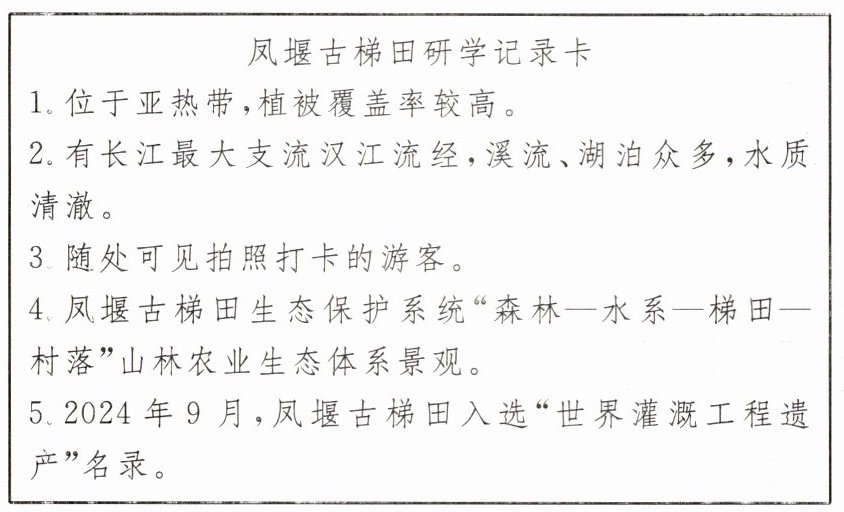 凤堰古梯田研学记录卡
1. 位于亚热带,植被覆盖率较高。
2. 有长江最大支流汉江流经,溪流、湖泊众多,水质
清澈。
3 随处可见拍照打卡的游客。
4. 凤堰古梯田生态保护系统“森林—水系—梯田—
村落”山林农业生态体系景观。
5. 2024 年 9 月,凤堰古梯田入选“世界灌溉工程遗
产”名录。